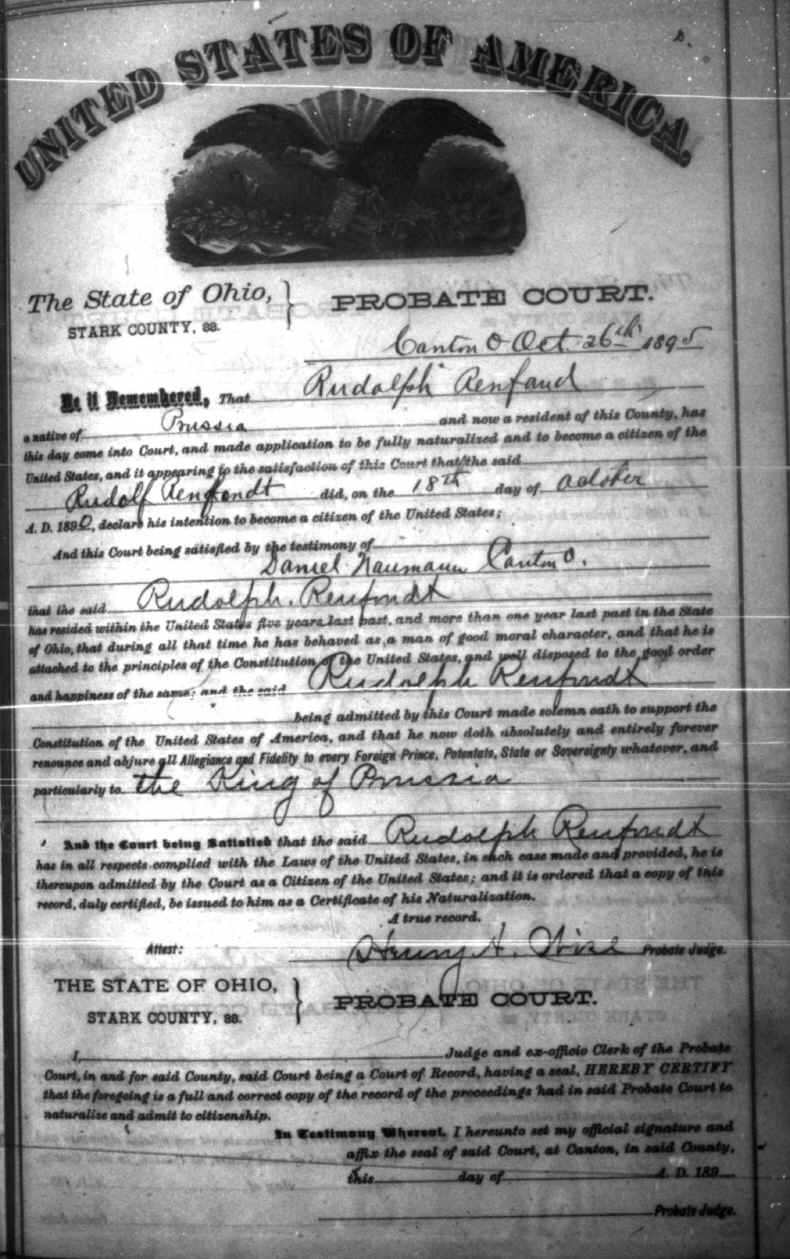 UNITED STATES OF AMERICA.
The State of Ohio, } PROBATE COURT.
STARK COUNTY, ss.
Canton O Oct. 26th 1895
Be it Remembered, That Rudolph Renfand
a native of Prussia and now a resident of this County, has
this day come into Court, and made application to be fully naturalized and to become a citizen of the
United States, and it appearing to the satisfaction of this Court that the said
Rudolf Renfondt did, on the 18th day of October
A. D. 1890, declare his intention to become a citizen of the United States;
And this Court being satisfied by the testimony of
Daniel Naumann Canton O.
that the said Rudolph. Renfondt
has resided within the United States five years last past, and more than one year last past in the State
of Ohio, that during all that time he has behaved as a man of good moral character, and that he is
attached to the principles of the Constitution of the United States, and well disposed to the good order
and happiness of the same; and the said Rudolph Renfondt
being admitted by this Court made solemn oath to support the
Constitution of the United States of America, and that he now doth absolutely and entirely forever
renounce and abjure all Allegiance and Fidelity to every Foreign Prince, Potentate, State or Sovereignty whatever, and
particularly to the King of Prussia
And the Court being Satisfied that the said Rudolph Renfondt
has in all respects complied with the Laws of the United States, in such case made and provided, he is
thereupon admitted by the Court as a Citizen of the United States; and it is ordered that a copy of this
record, duly certified, be issued to him as a Certificate of his Naturalization.
A true record.
Attest: Henry A. Wise Probate Judge.
THE STATE OF OHIO, } PROBATE COURT.
STARK COUNTY, ss.
I, Judge and ex-officio Clerk of the Probate
Court, in and for said County, said Court being a Court of Record, having a seal, HEREBY CERTIFY
that the foregoing is a full and correct copy of the record of the proceedings had in said Probate Court to
naturalize and admit to citizenship.
In Testimony Whereof, I hereunto set my official signature and
affix the seal of said Court, at Canton, in said County,
this day of A. D. 189
Probate Judge.